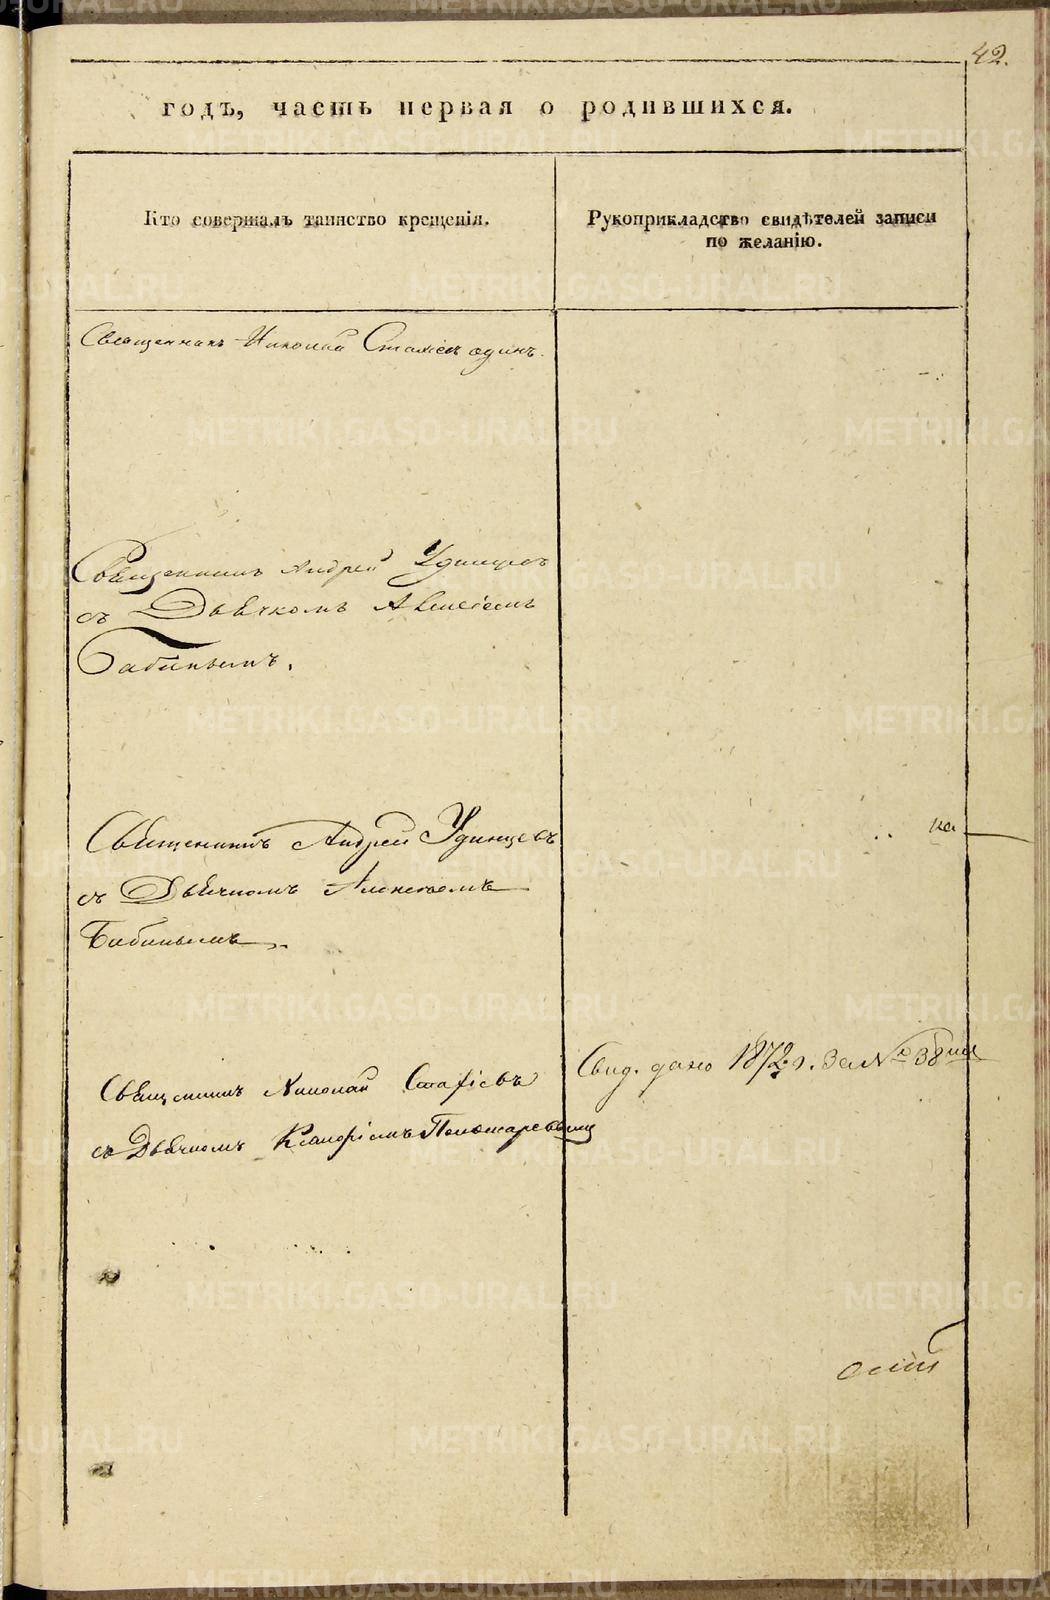 42.
годъ, часть первая о родившихся.
Кто совершалъ таинство крещенія.
Рукоприкладство свидѣтелей записи
по желанію.
Священникъ Николай Стахіевъ одинъ.
Священникъ Андрей Удинцевъ
съ Дьячкомъ Алексіемъ
Бабинымъ.
Священникъ Андрей Удинцевъ
съ Дьячкомъ Алексѣемъ
Бабинымъ.
Свид. дано 1872 г. За № 38
Священникъ Николай Стахіевъ
съ Дьячкомъ Ксенофонтомъ Пономаревымъ
METRIKI.GASO-URAL.RU